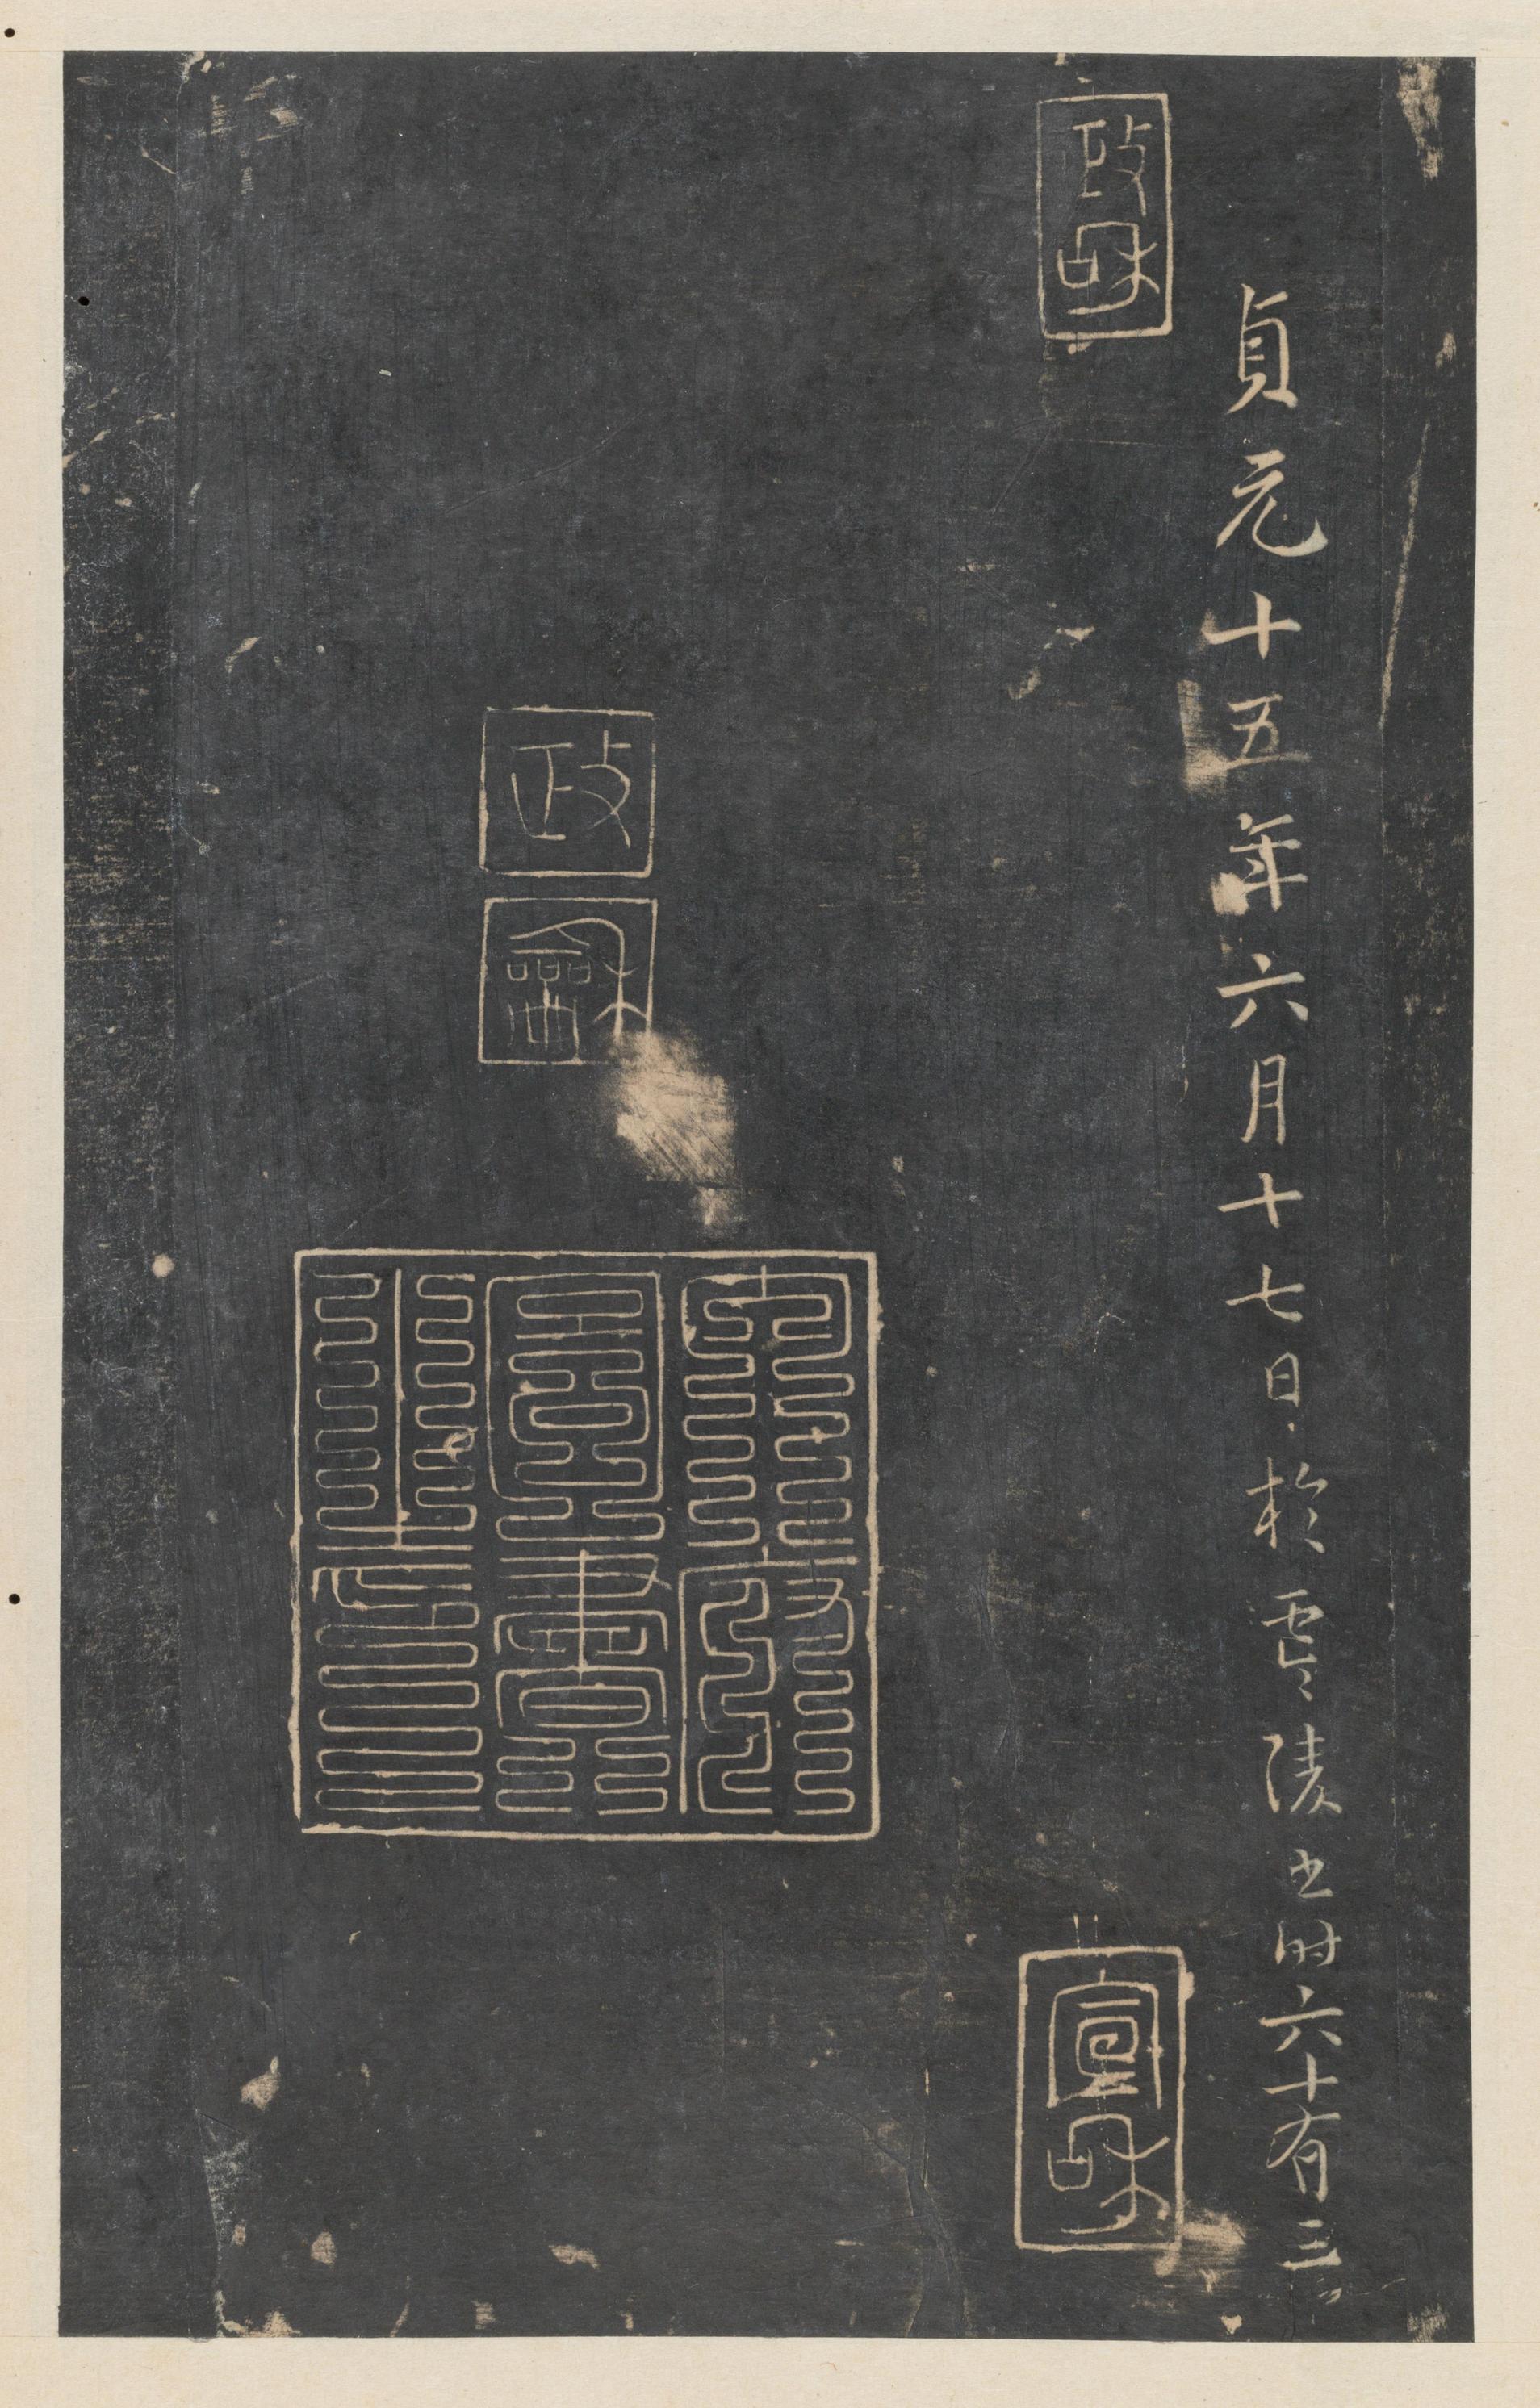 貞元十五年六月十七日於零陵書時六十有三
政和
宣和
政
龢